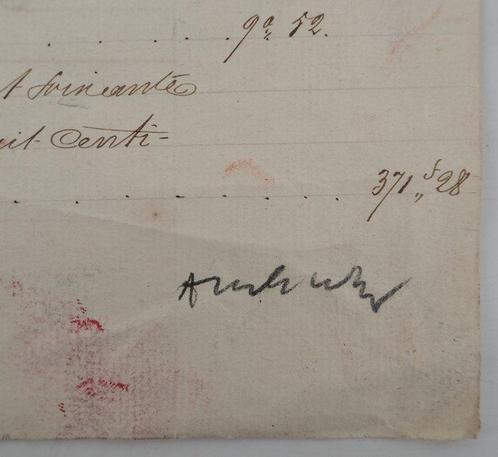 9ª 52.
t soixante
uit Centi-
371 ,, f 28